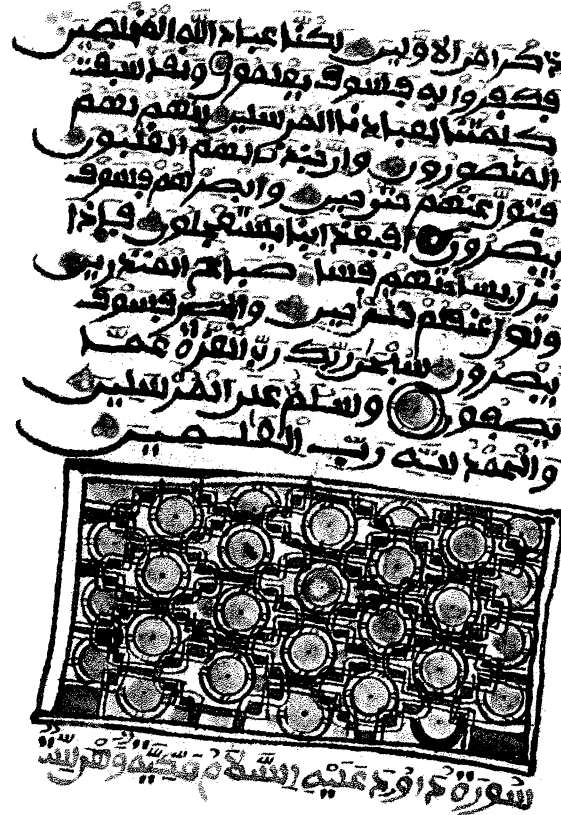 ذكرا من الاولين لكنا عباد الله المخلصين
فكفروا به فسوف يعلمون ولقد سبقت
كلمتنا لعبادنا المرسلين انهم لهم
المنصورون وان جندنا لهم الغلبون
فتول عنهم حتى حين وابصرهم فسوف
يبصرون افبعذابنا يستعجلون فاذا
نزل بساحتهم فساء صباح المنذرين
وتول عنهم حتى حين وابصر فسوف
يبصرون سبحن ربك رب العزة عما
يصفون وسلم على المرسلين
والحمد لله رب العلمين
سورة داود عليه السلام مكية وهي